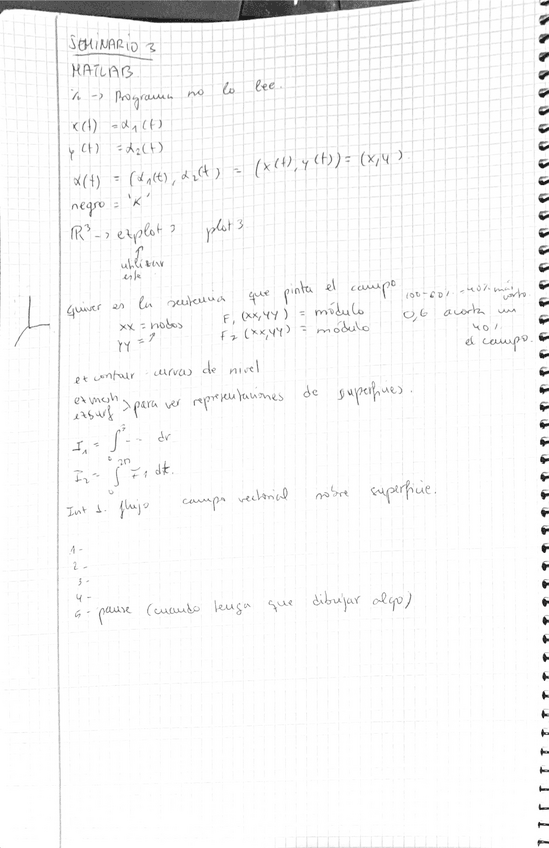 SEMINARIO 3
MATLAB
% -> Programa no lo lee.
x(t) = α₁(t)
y(t) = α₂(t)
α(t) = (α₁(t), α₂(t) = (x(t), y(t)) = (x,y)
negro = 'K'
ℝ³ -> ezplot 3 plot 3
↑
utilizar
este
Quiver es la sentencia que pinta el campo
xx = nodos F₁(xx,yy) = módulo
yy = F₂(xx,yy) = módulo
100-60% -40% más
corto
0,6 acorta un
40%
el campo.
ezcontour curvas de nivel
ezmesh
ezsurf > para ver representaciones de superficies.
I₁ = ∫ dr
I₂ = ∫₀^2π
Int s. flujo campo vectorial sobre superficie.
1-
2-
3-
4-
5- pause (cuando tenga que dibujar algo)